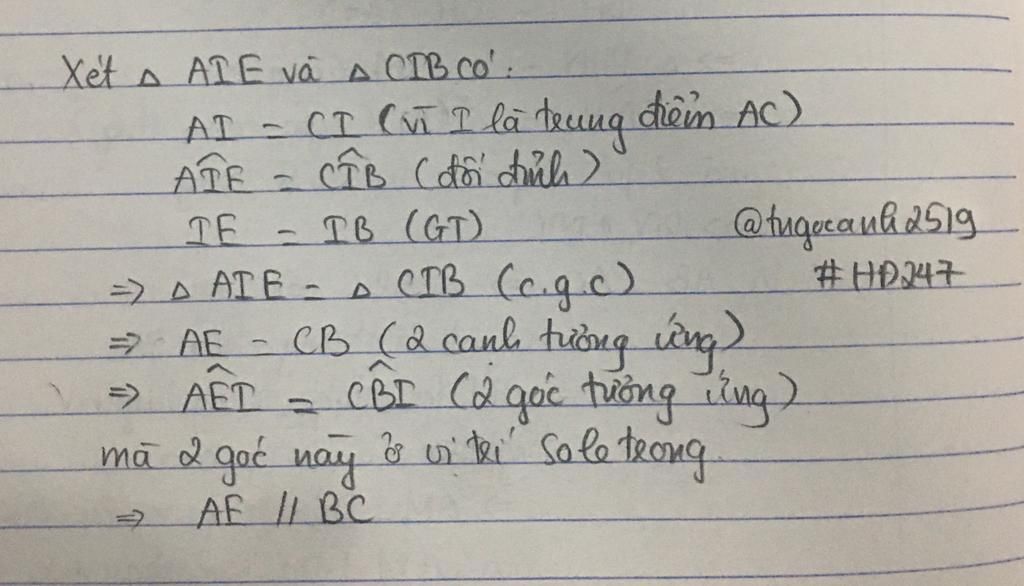 Xét △ AIE và △ CIB có:
AI = CI (vì I là trung điểm AC)
AÎE = CÎB (đối đỉnh)
IE = IB (GT)
@tngocanh2519
⇒ △ AIE = △ CIB (c.g.c)
#HD247
⇒ AE = CB (2 cạnh tương ứng)
⇒ AÊI = CB̂I (2 góc tương ứng)
mà 2 góc này ở vị trí so le trong
⇒ AE // BC